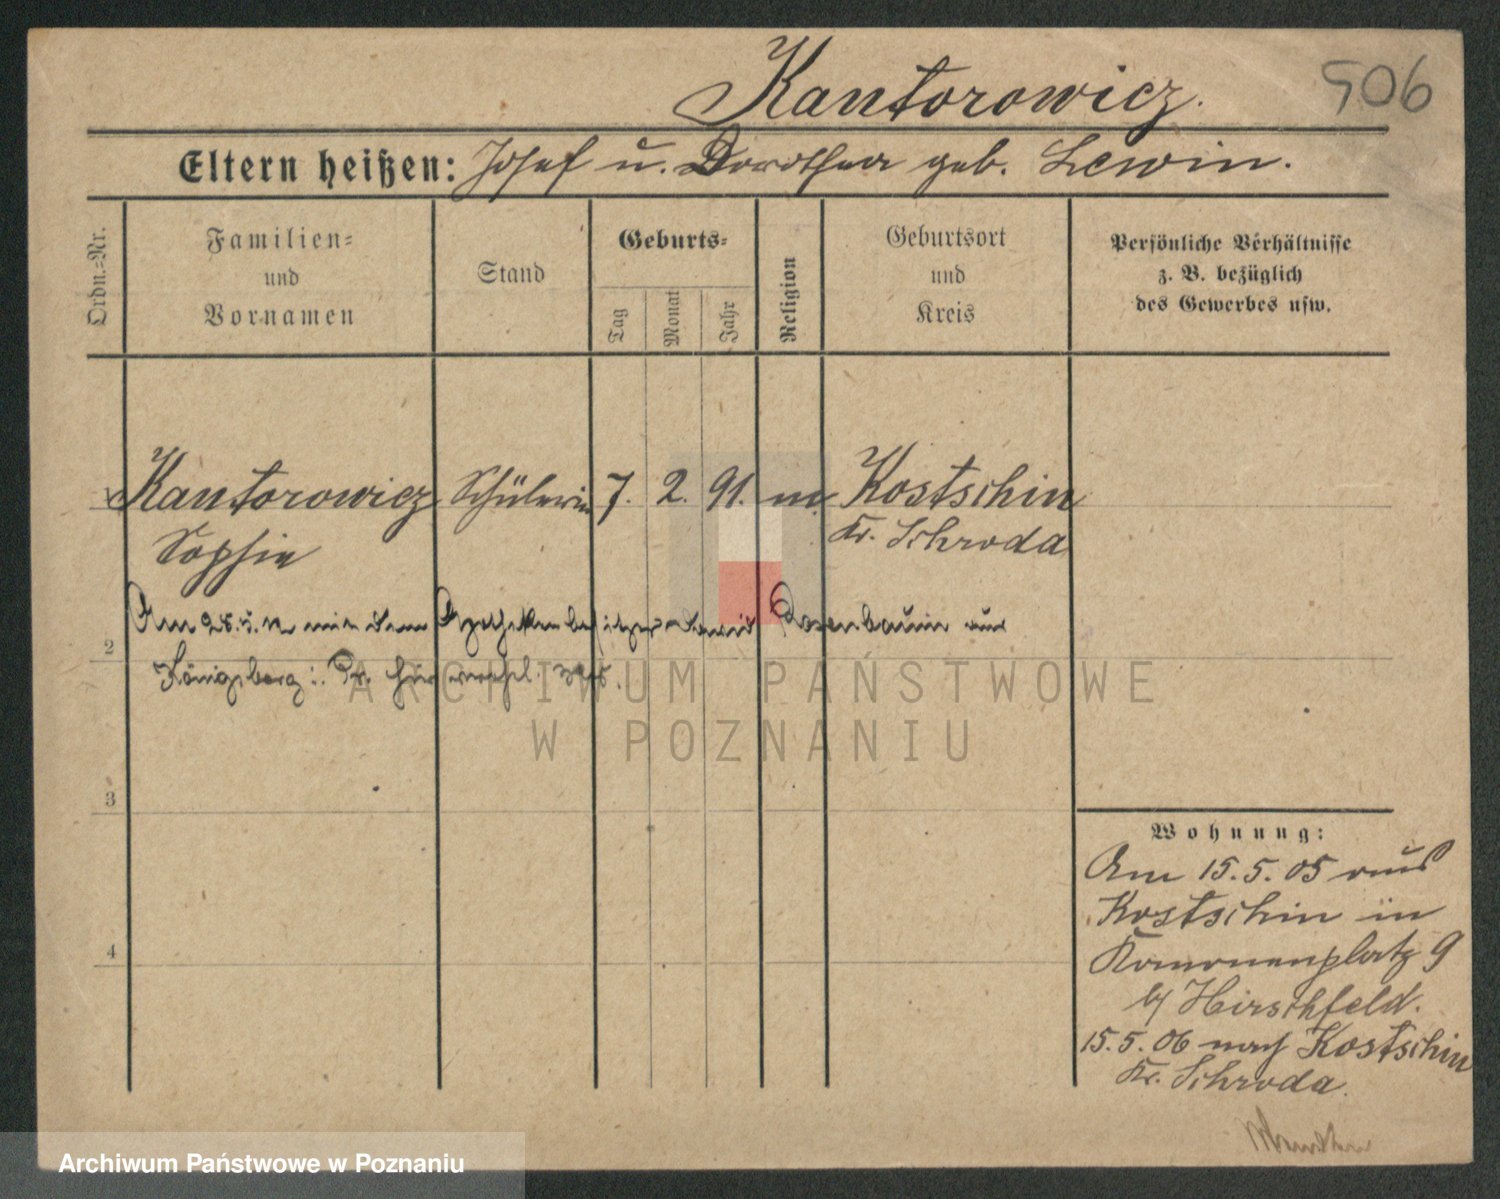 Kantorowicz.
506
Eltern heißen: Josef u. Dorothea geb. Lewin.
Ordn.-Nr.
Familien-
und
Vornamen
Stand
Geburts-
Tag
Monat
Jahr
Religion
Geburtsort
und
Kreis
Persönliche Verhältnisse
z. B. bezüglich
des Gewerbes usw.
1 Kantorowicz Schülerin 7. 2. 91. m Kostschin
Sophie Kr. Schroda
Am 28.5.12 mit dem Apothekenbesitzer David Rosenbaum aus
2
Königsberg i. Pr. hier verehel.
ARCHIWUM PAŃSTWOWE
W POZNANIU
3
4
Wohnung:
Am 15.5.05 aus
Kostschin in
Kononenplatz 9
by Hirschfeld.
15.5.06 nach Kostschin
Kr. Schroda.
Archiwum Państwowe w Poznaniu